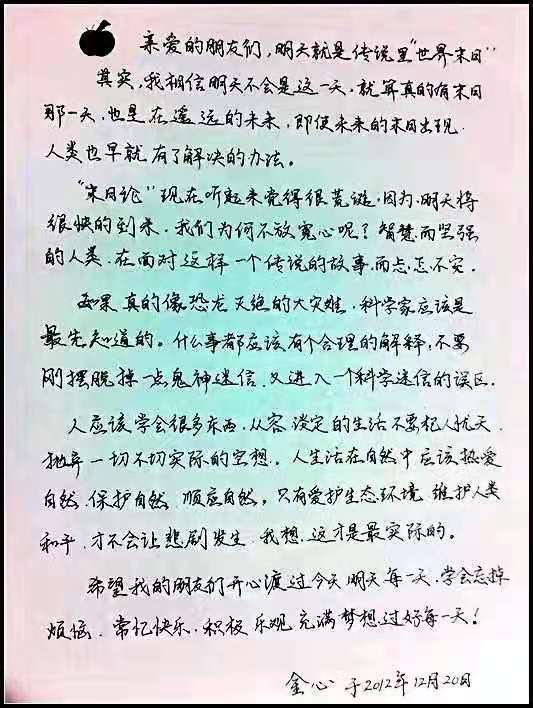 亲爱的朋友们，明天就是传说里"世界末日"
其实，我相信明天不会是这一天，就算真的有末日
那一天，也是在遥远的未来，即使未来的末日出现，
人类也早就有了解决的办法。
"末日论"现在听起来觉得很荒诞，因为，明天将
很快的到来，我们为何不放宽心呢？智慧而坚强
的人类，在面对这样一个传说的故事而忐忑不安。
如果真的像恐龙灭绝的大灾难，科学家应该是
最先知道的。什么事都应该有个合理的解释，不要
刚摆脱掉一点鬼神迷信，又进入一个科学迷信的误区。
人应该学会很多东西，从容淡定的生活不要杞人忧天，
抛弃一切不切实际的空想。人生活在自然中应该热爱
自然，保护自然，顺应自然。只有爱护生态环境，维护人类
和平，才不会让悲剧发生，我想，这才是最实际的。
希望我的朋友们开心渡过今天明天每一天，学会忘掉
烦恼，常忆快乐，积极乐观充满梦想，过好每一天！
金心 于2012年12月20日